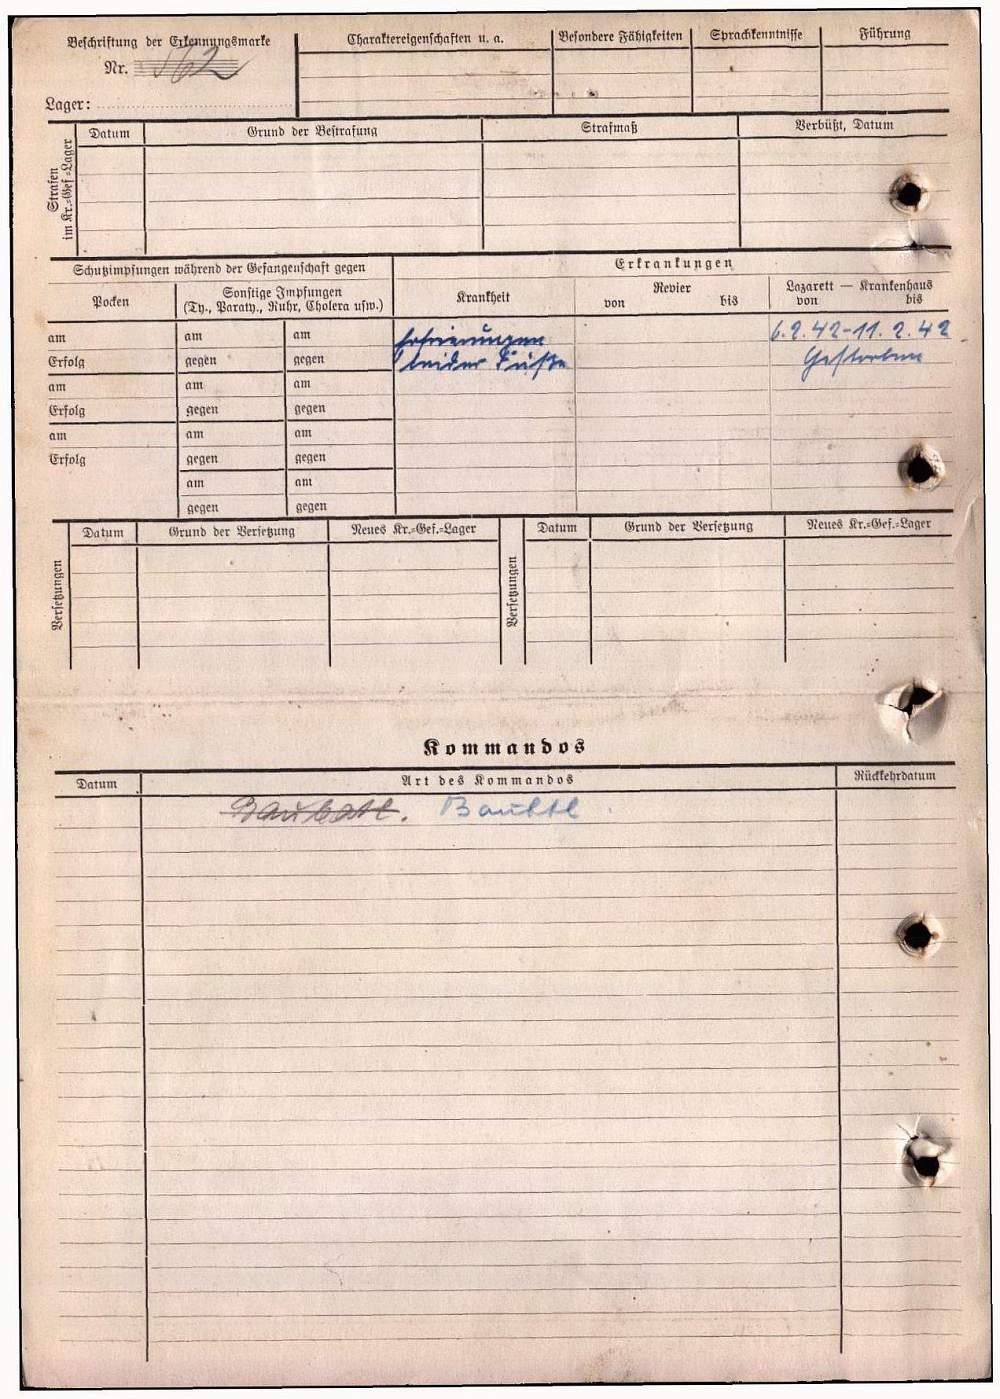 Beschriftung der Erkennungsmarke
Nr. 562
Lager:
Charaktereigenschaften u. a.
Besondere Fähigkeiten
Sprachkenntnisse
Führung
Strafen im Kr.=Gef.=Lager
Datum
Grund der Bestrafung
Strafmaß
Verbüßt, Datum
Schutzimpfungen während der Gefangenschaft gegen
Erkrankungen
Pocken
Sonstige Impfungen
(Ty., Paraty., Ruhr, Cholera usw.)
Krankheit
Revier
von bis
Lazarett — Krankenhaus
von bis
am am am
Erfrierungen
6.2.42-11.2.42
Erfolg gegen gegen
beider Füße
Gestorben
am am am
Erfolg gegen gegen
am am am
Erfolg gegen gegen
am am
gegen gegen
Versetzungen
Datum
Grund der Versetzung
Neues Kr.=Gef.=Lager
Versetzungen
Datum
Grund der Versetzung
Neues Kr.=Gef.=Lager
Kommandos
Datum
Art des Kommandos
Rückkehrdatum
Baubatl. Baubtl